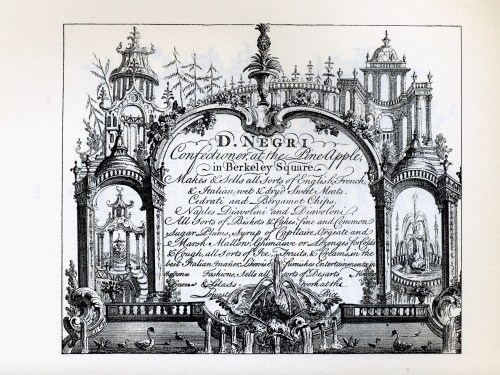 D. NEGRI
Confectioner, at the Pine Apple,
in Berkeley Square.
Makes & Sells all Sorts of English, French,
& Italian, wet & dry'd Sweet Meats.
Cedrati and Bergamot Chips,
& Naples Diavolini and Diavoloni.
All Sorts of Biskets & Cakes, fine and Common
Sugar Plums, Syrup of Capilaire, Orgeate and
Marsh Mallow, Ghimauve or Lozenges for Colds
& Cough, all Sorts of Ice, Fruits, & Creams in the
best Italian manner, furnishes Entertainments in
Fashions, Sells all sorts of Desarts,
& Glass work at the
Lowest Price